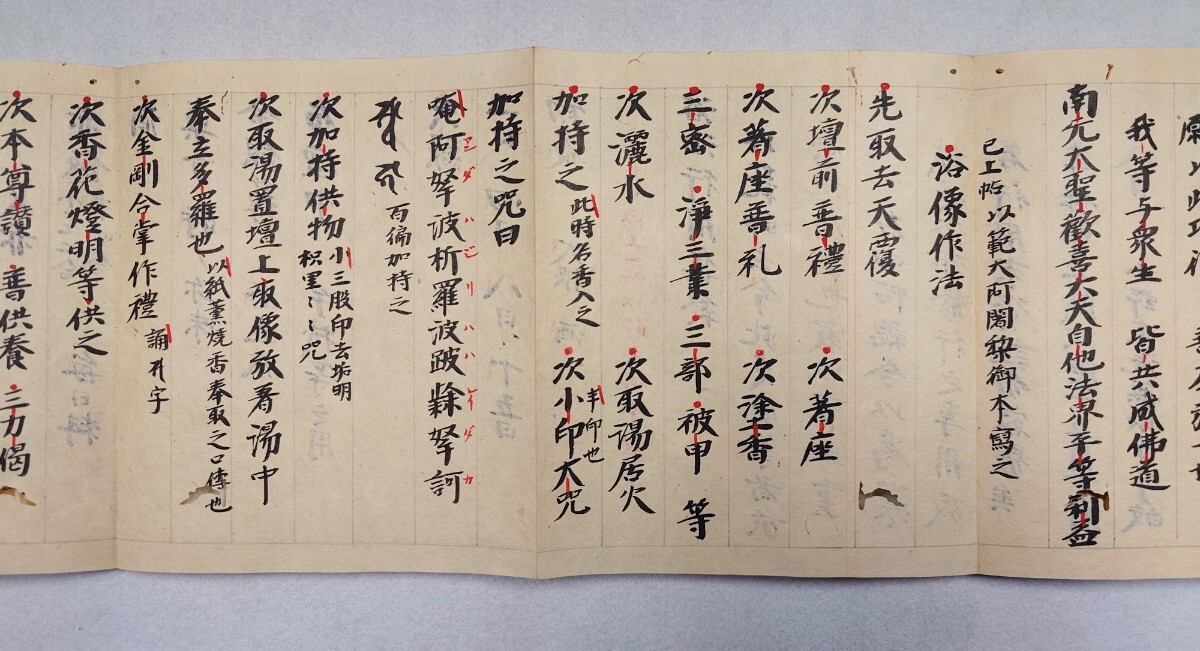 我等与衆生 皆共成佛道
南无大聖歡喜大天自他法界平等利益
已上帖以範大阿闍梨御本寫之
浴像作法
先取去天覆
次壇前普禮 次著座
次著座普礼 次塗香
三密 淨三業 三部 被甲 等
次灑水 次取湯居火
加持之 此時名香入之 次小印大咒 丰印也
加持之咒曰
唵阿拏波析羅波跛㲚拏訶 アンダハジリハハレイダカ
百徧加持之
次加持供物 小三股印去垢明 枳里〻〻咒
次取湯置壇上取像放著湯中
奉立多羅也 以紙薫焼香奉取之口傳也
次金剛合掌作禮 誦 字
次香花燈明等供之
次本尊讃 普供養 三力偈